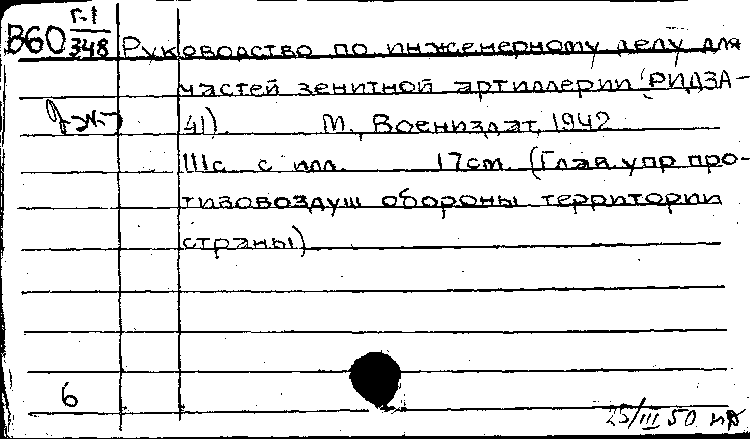 В60 Г-1/348 Руководство по инженерному делу для
частей зенитной артиллерии (РИДЗА-
41). М., Воениздат, 1942
111с. с илл. 17см. (Глав. упр про-
тивовоздуш обороны территории
страны)
6
25/III 50